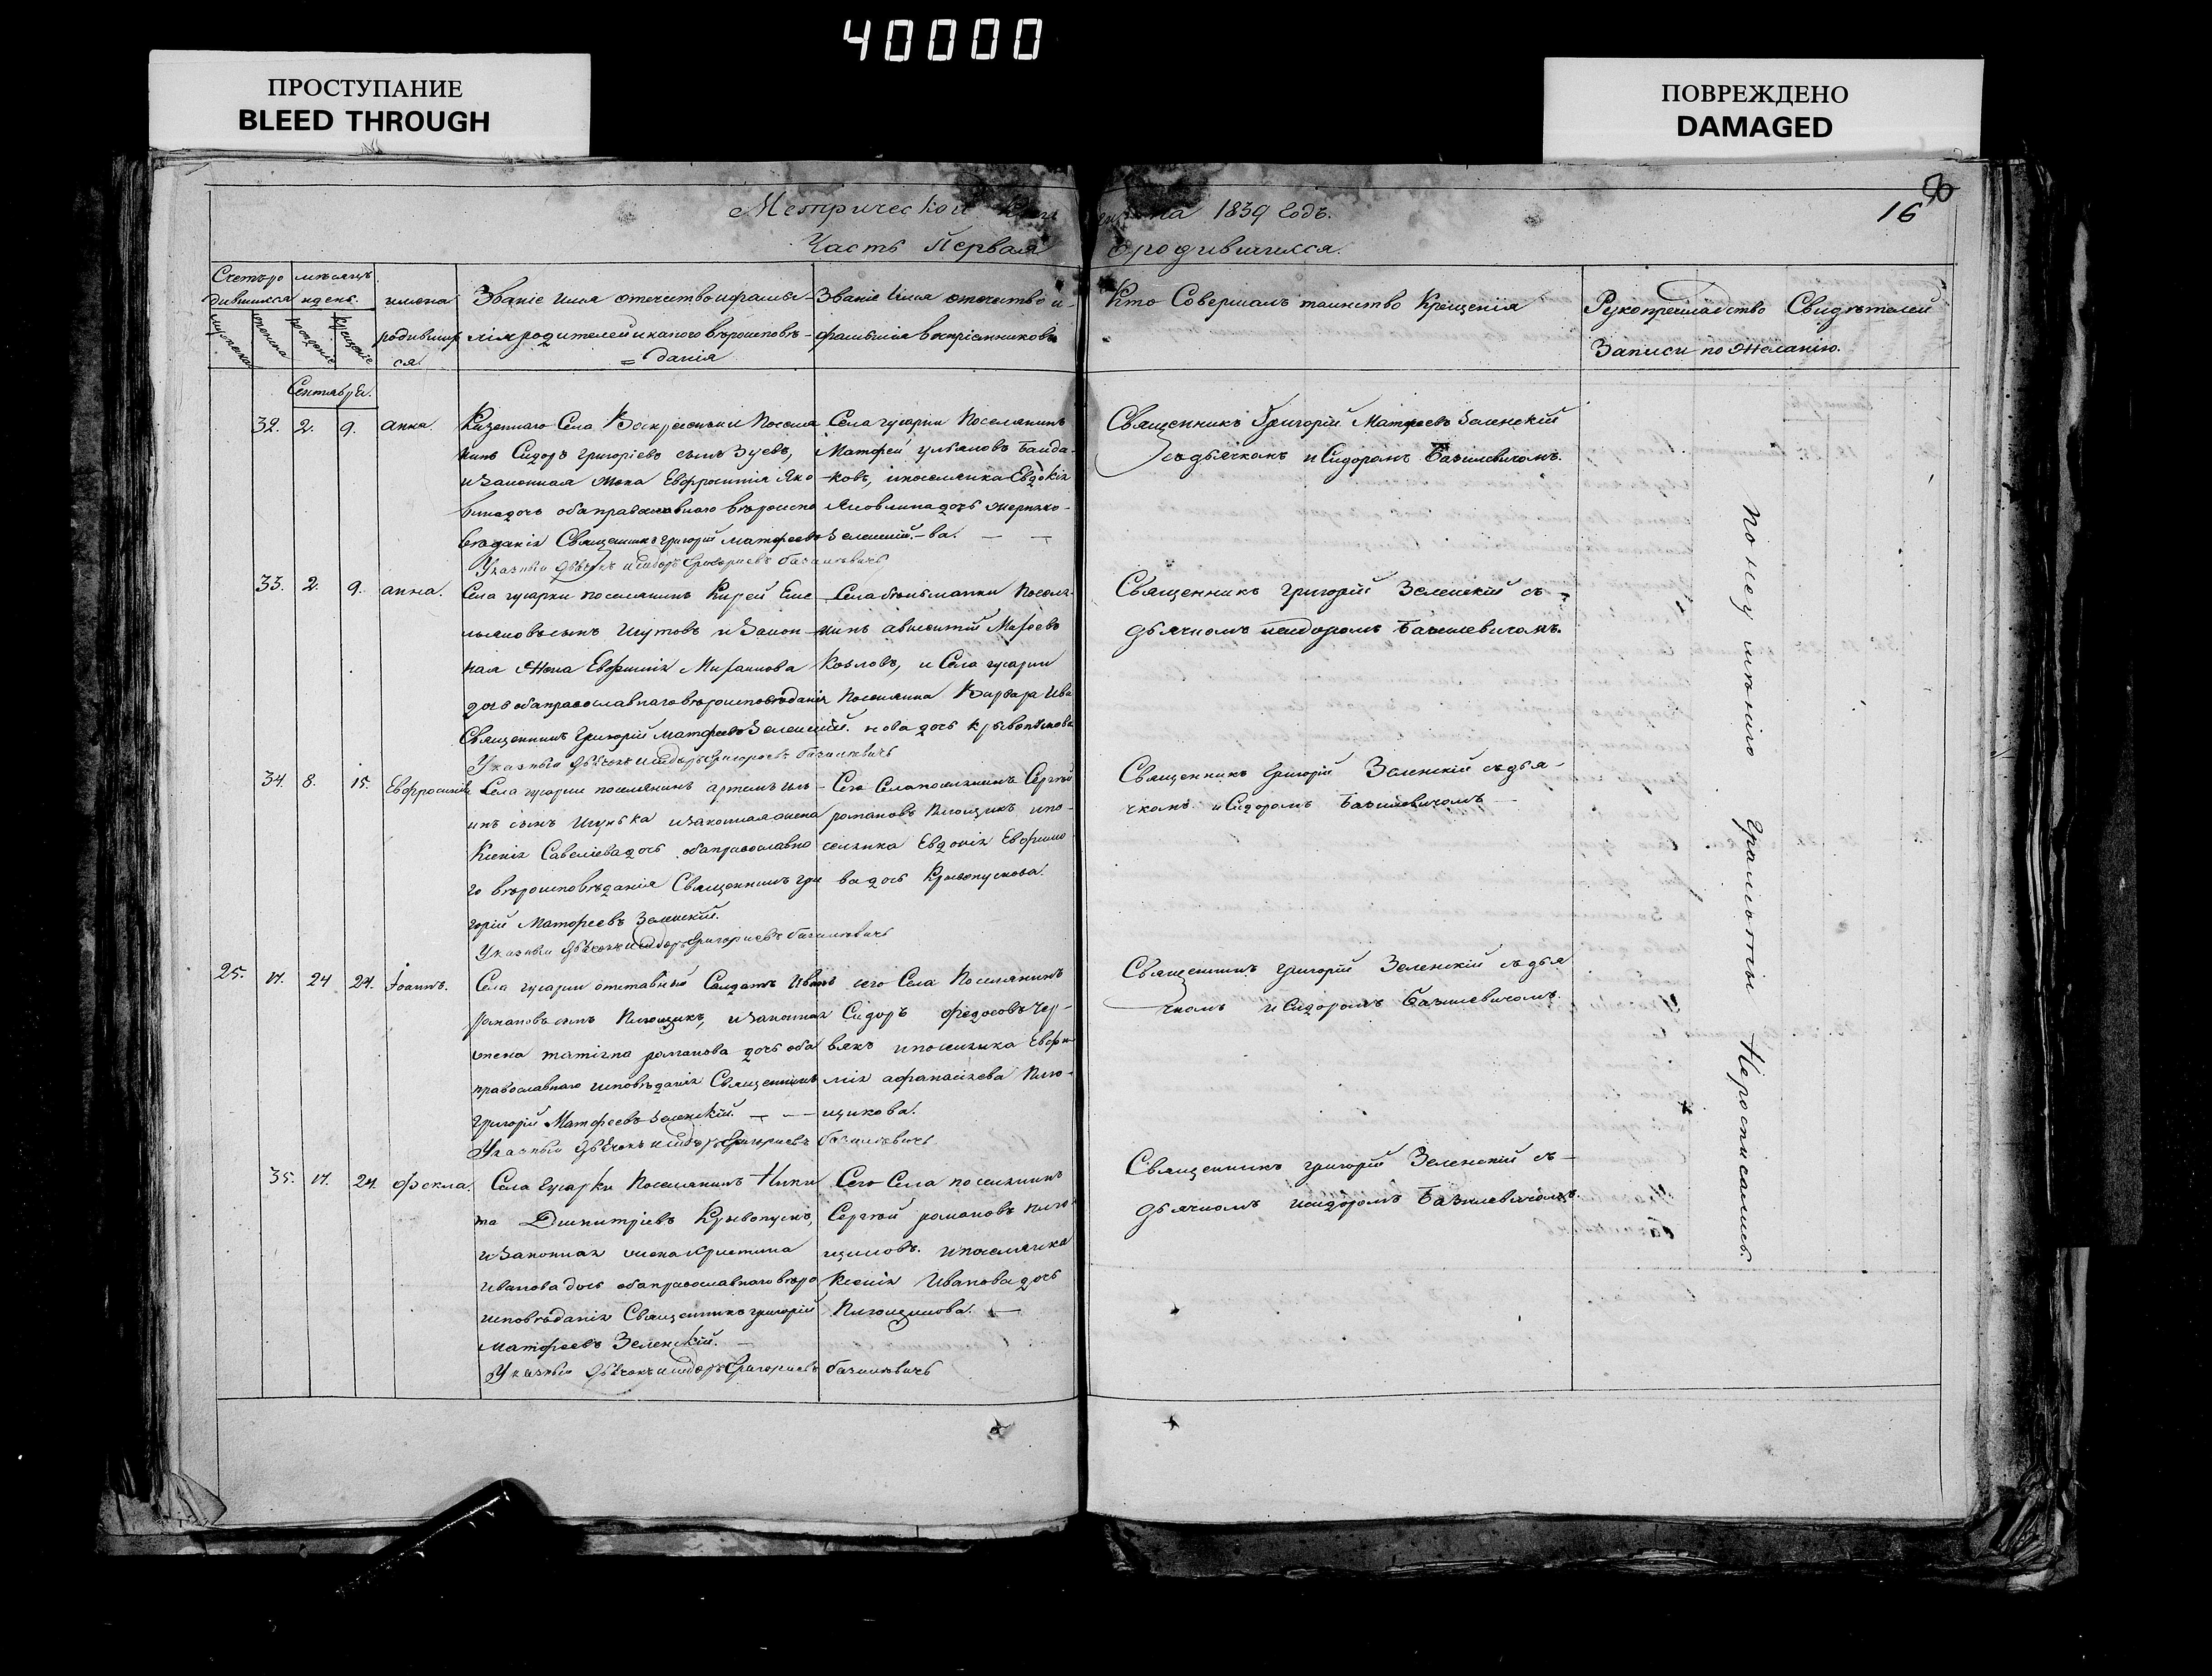 40000
ПРОСТУПАНИЕ
BLEED THROUGH
ПОВРЕЖДЕНО
DAMAGED
16
Метрической на 1839 Годъ.
Часть Первая Ородившихся.
Счетъ ро
дившихся
мѣсяцъ
и день.
имена
родивших
ся.
Званіе имя отечество и фами
лія родителей и какого вѣроисповѣ
= данія
Званіе Имя отечество и
фамилія воспріемниковъ
Кто Совершалъ таинство Крещенія
Рукоприкладство Свидѣтелей
Записи по желанію.
Сентября.
32. 2. 9. анна.
Казеннаго Села Воскресенки Поселя
нинъ Сидоръ Григоріевъ сынъ Зуевъ,
и законная жена Евфросинія Яко
влева дочь оба православнаго вѣроиспо
вѣданія Священникъ Григорій Матфеевъ Зеленскій.
Указный Дьячокъ Исидоръ Григориевъ базилевичь
Села гусарки Поселянинъ
Матфей Ульяновъ Байда
ковъ, и поселянка Евдокія
Яковлина дочь
ва.
Священникъ Григорій Матфеевъ Зеленскій
съ дьячкомъ Исидоромъ Базилевичомъ.
33. 2. 9. анна.
Села гусарки поселянинъ Кирей Еме
льяновъ сынъ Шутовъ и Закон
ная Жена Евфимія
дочь оба православнаго вѣроисповѣданія
Священникъ Григорій Матфеевъ Зеленскій.
Указный Дьячокъ Исидоръ Григориевъ базилевичь
Села Поселя
нинъ
Козловъ, и Села гусарки
Поселянка Варвара Ива
нова дочь
Священникъ Григорій Зеленскій съ
дьячкомъ Исидоромъ Базилевичомъ.
34. 8. 15. Евфросинія
Села гусарки поселянинъ артемъ Иль
инъ сынъ Шунька и законная жена
Ксенія Савеліева дочь оба православна
го вѣроисповѣданія Священникъ Гри
горій Матфеевъ Зеленскій.
Указный Дьячокъ Исидоръ Григориевъ базилевичь
Сего Села поселянинъ Сергѣй
романовъ Пигощикъ и по
селянка Евдокія Евфимо
ва дочь Крывопускова.
Священникъ Григорій Зеленскій съ дья
чкомъ Исидоромъ Базилевичомъ
25. 17. 24 24. Іоаннъ.
Села гусарки отставный Салдатъ Иванъ
романовъ сынъ Пигощикъ, и законная
жена романова дочь оба
православнаго исповѣданія Священникъ
Григорій Матфеевъ Зеленскій.
Указный Дьячокъ Исидоръ Григориевъ базилевичь
сего Села Поселянинъ
Сидоръ федосовъ Чер
вякъ и поселянка Евфи
мія афанасіева Пиго
щикова.
Священникъ Григорій Зеленскій съ дья
чкомъ Исидоромъ Базилевичомъ.
35. 17. 24. Фекла.
Села Гусарки Поселянинъ Ники
та Димитріевъ Крывопускъ,
и законная жена Кристина
Иванова дочь оба православнаго вѣро
исповѣданія Священникъ Григорій
Матфеевъ Зеленскій.
Указный Дьячокъ Исидоръ Григориевъ базилевичь
Сего Села поселянинъ
Сергѣй романовъ Пиго
щиковъ. и поселянка
Ксенія Иванова дочь
Пигощикова.
Священникъ Григорій Зеленскій съ
дьячкомъ Исидоромъ Базилевичомъ.
По неумѣнію Грамоты Неросписались.